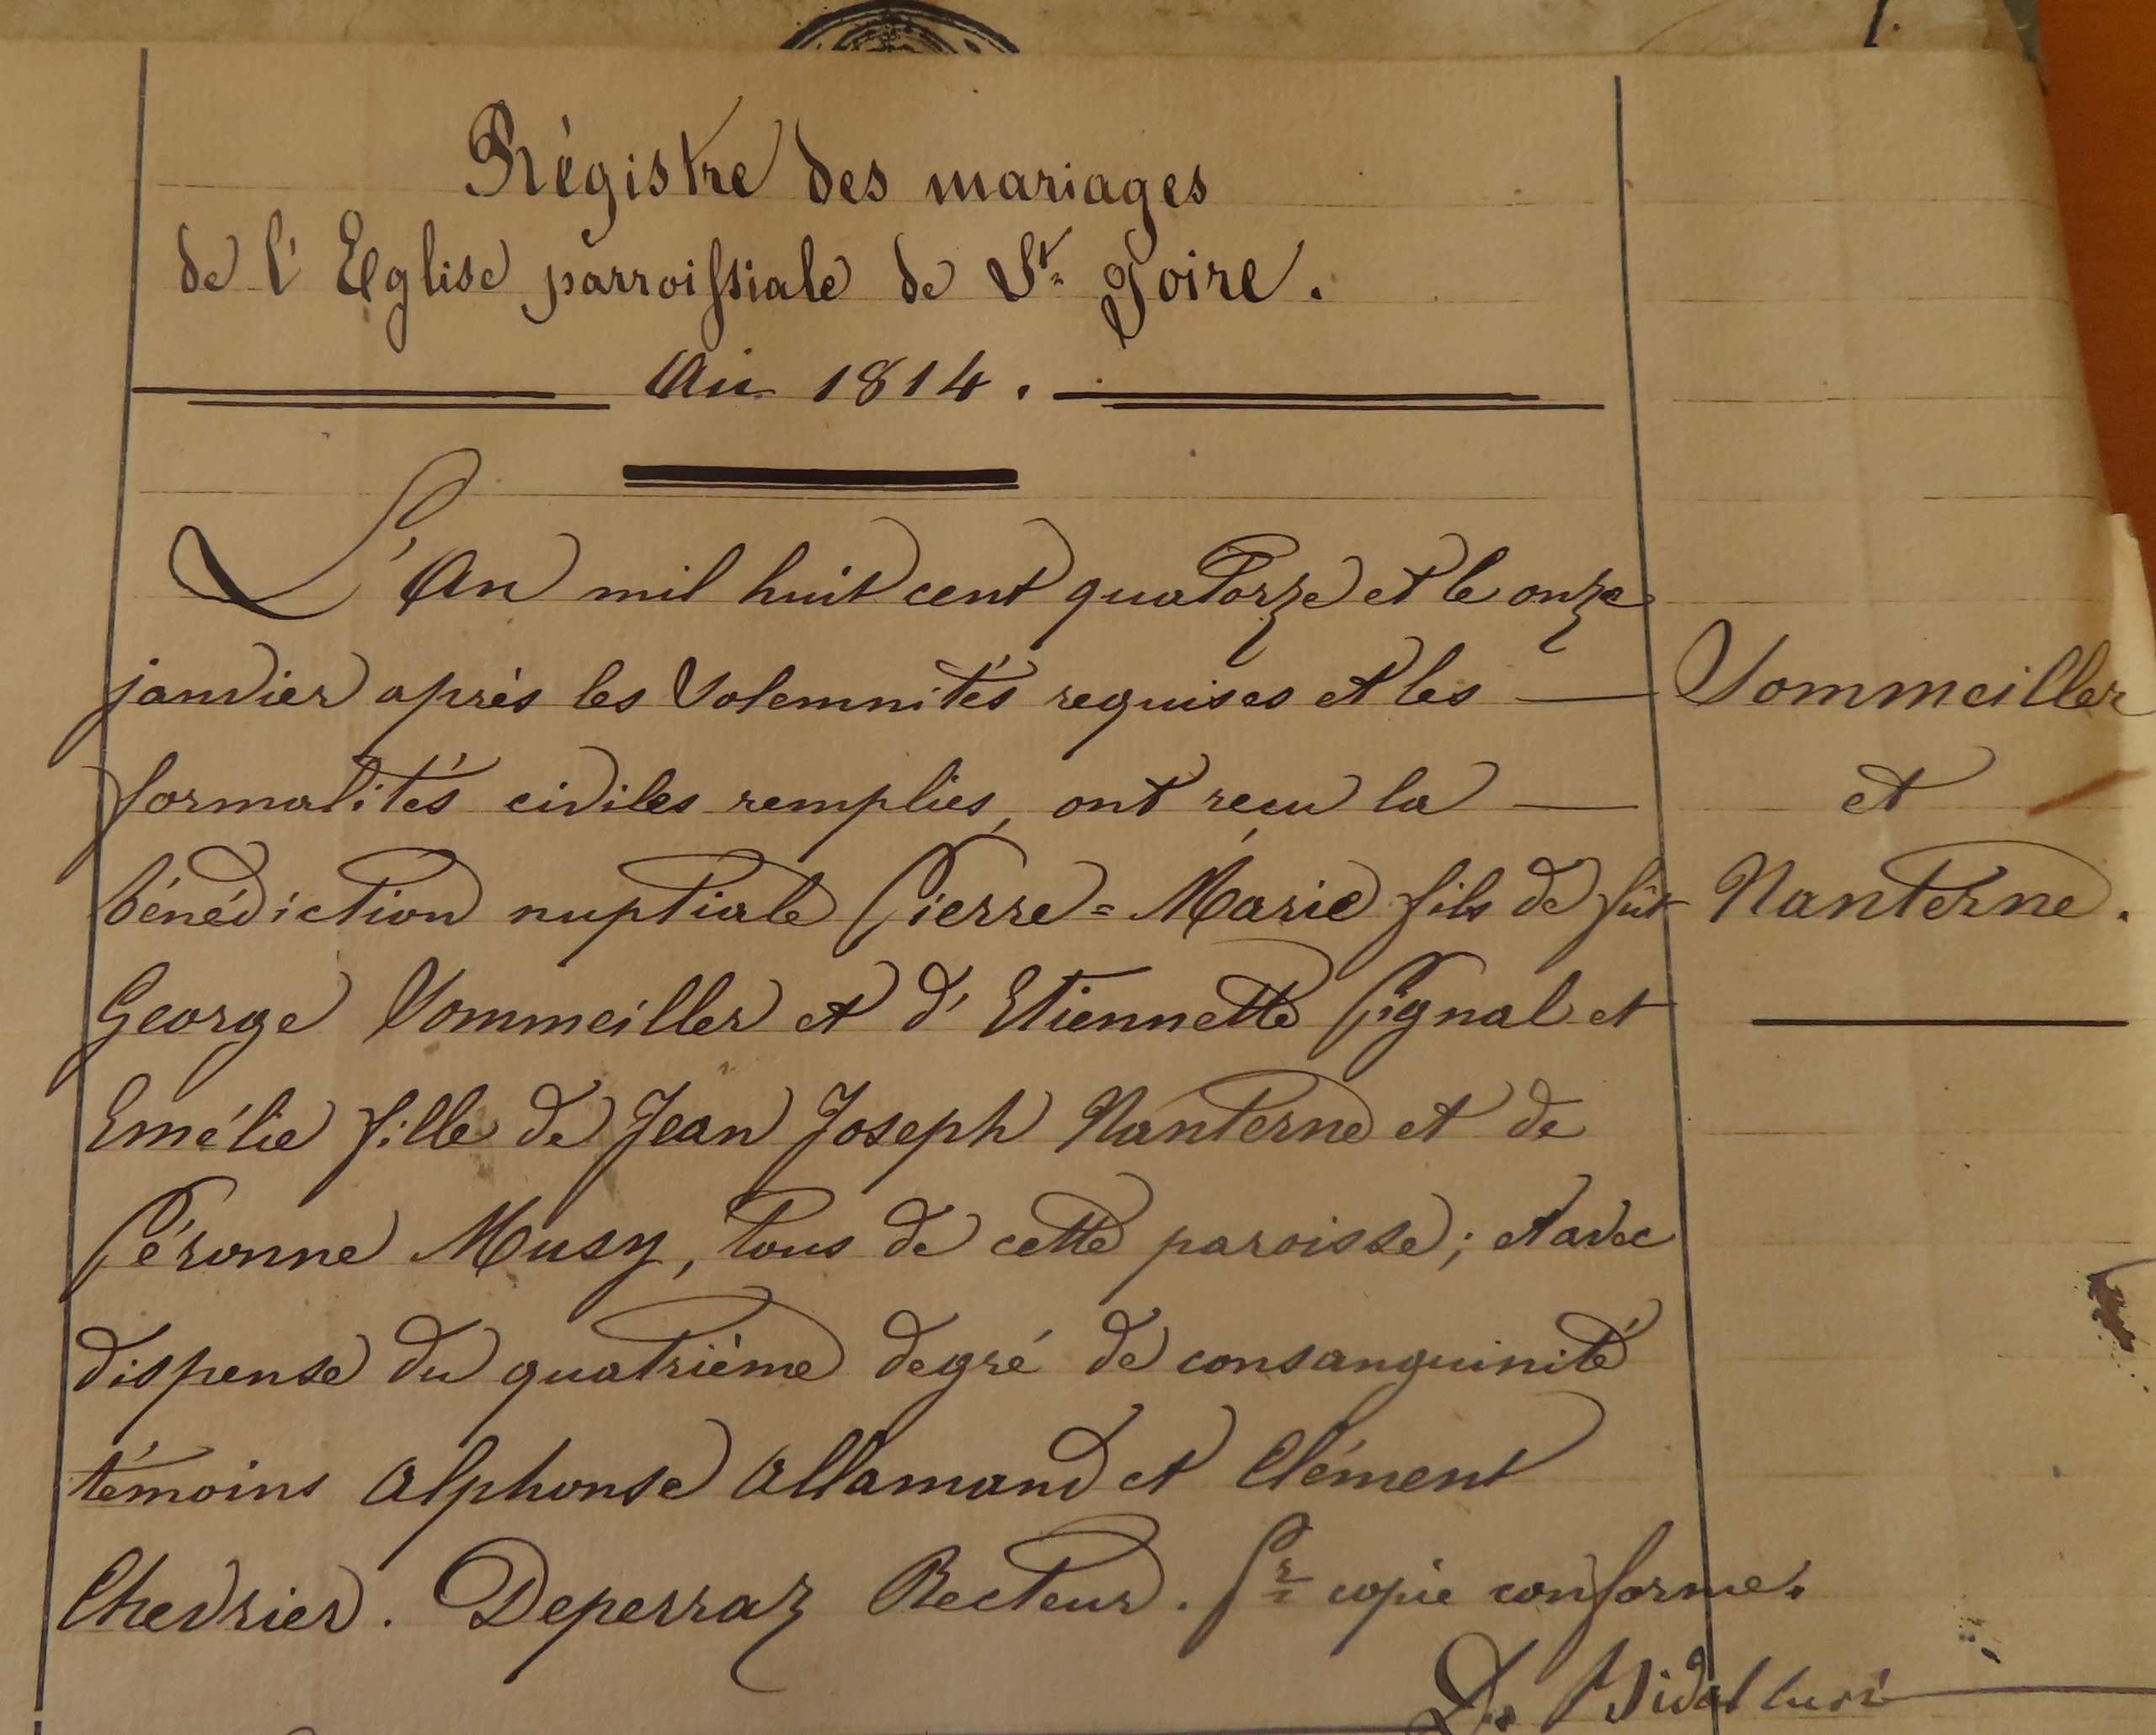 Régistre des mariages
de l'Eglise parroissiale de St. Joire.
An 1814.
L'An mil huit cent quatorze et le onze
janvier après les Solemnités requises et les
formalités civiles remplies, ont reçu la
bénédiction nuptiale Pierre=Marie fils de fût
George Sommeiller et d'Etiennette Pignal et
Emélie fille de Jean Joseph Nanterne et de
Péronne Musy, tous de cette paroisse; et avec
dispense du quatrième degré de consanguinité
témoins Alphonse Allamand et Clément
Chevrier. Deperraz Recteur. Pr copie conforme.
Vidal curé
Sommeiller
et
Nanterne.